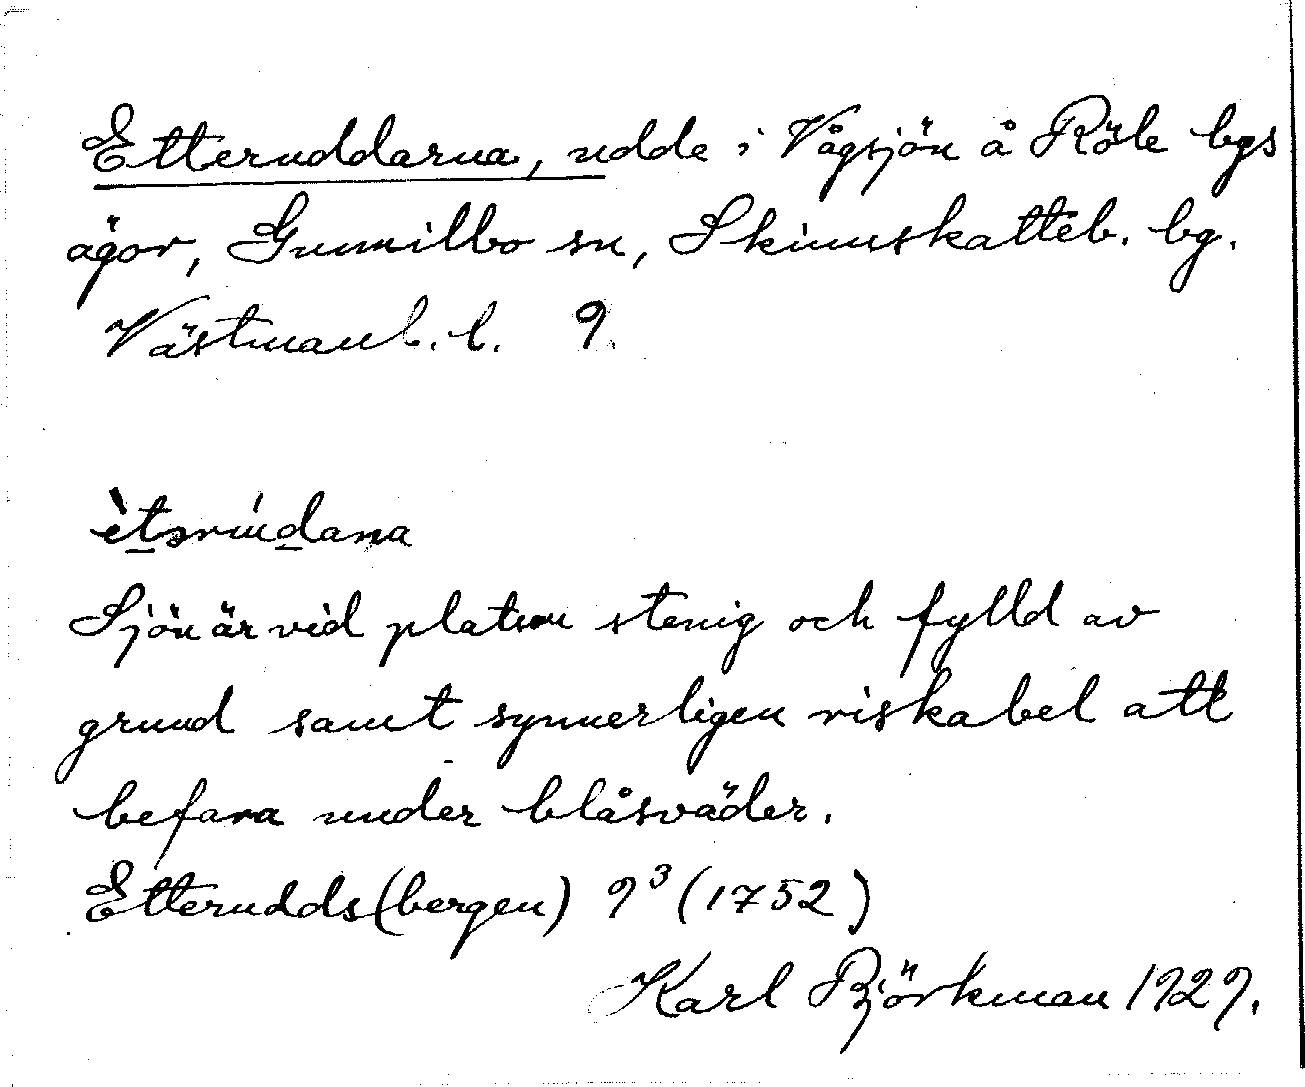 Etteruddarna, udde i Vågsjön å Röle bgs
ägor, Gunnilbo sn, Skinnskatteb. bg.
Västmanl. l. 9.
ètərúdana
Sjön är vid platsen stenig och fylld av
grund samt synnerligen riskabel att
befara under blåsväder.
Etterudds(bergen) 9³ (1752)
Karl Björkman 1929.